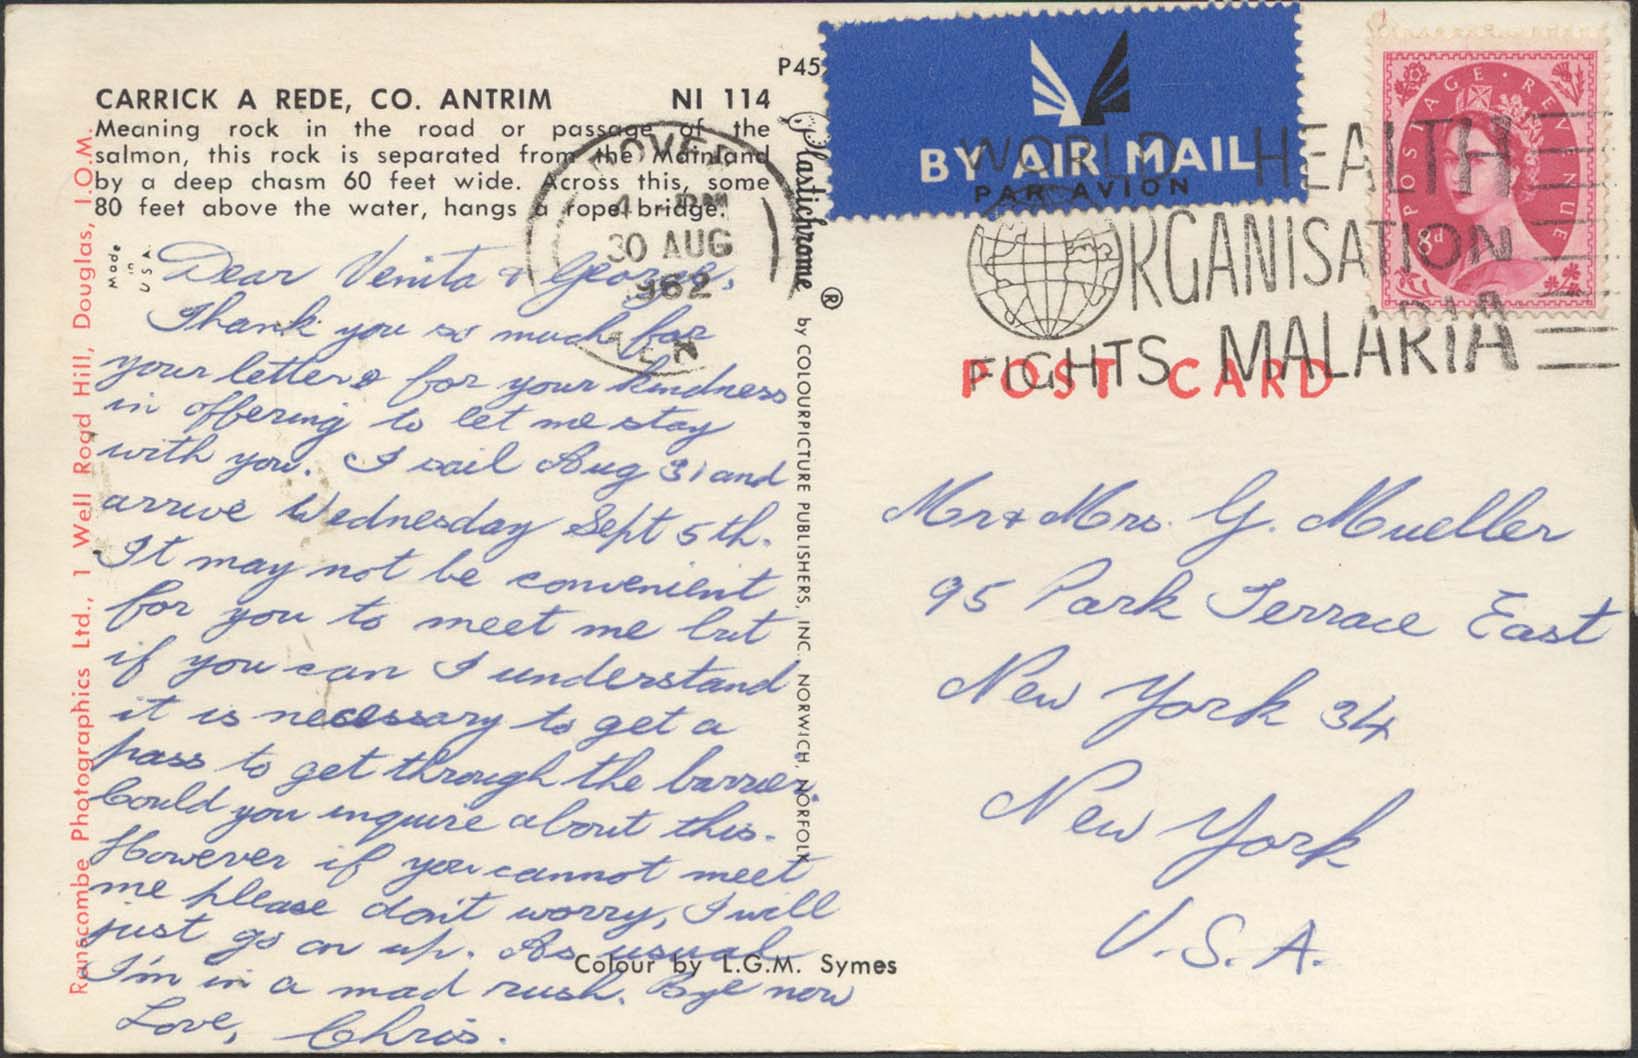 P45
CARRICK A REDE, CO. ANTRIM NI 114
Meaning rock in the road or passage of the
salmon, this rock is separated from the Mainland
by a deep chasm 60 feet wide. Across this, some
80 feet above the water, hangs a rope bridge.
Made
in
U S A.
Dear Venita & George,
Thank you so much for
your letter & for your kindness
in offering to let me stay
with you. I sail Aug 31 and
arrive Wednesday Sept 5th.
It may not be convenient
for you to meet me but
if you can I understand
it is necessary to get a
pass to get through the barrier.
Could you inquire about this.
However if you cannot meet
me please don't worry, I will
just go on up. As usual
I'm in a mad rush. Bye now
Love, Chris.
Ranscombe Photographics Ltd., 1 Well Road Hill, Douglas, I.O.M.
Plastichrome ® by COLOURPICTURE PUBLISHERS, INC. NORWICH, NORFOLK
Colour by L.G.M. Symes
DOVER
4 PM
30 AUG
1962
BY AIR MAIL
PAR AVION
POSTAGE · REVENUE
8d
WORLD HEALTH
ORGANISATION
FIGHTS MALARIA
POST CARD
Mr & Mrs. G. Mueller
95 Park Terrace East
New York 34
New York
U.S.A.